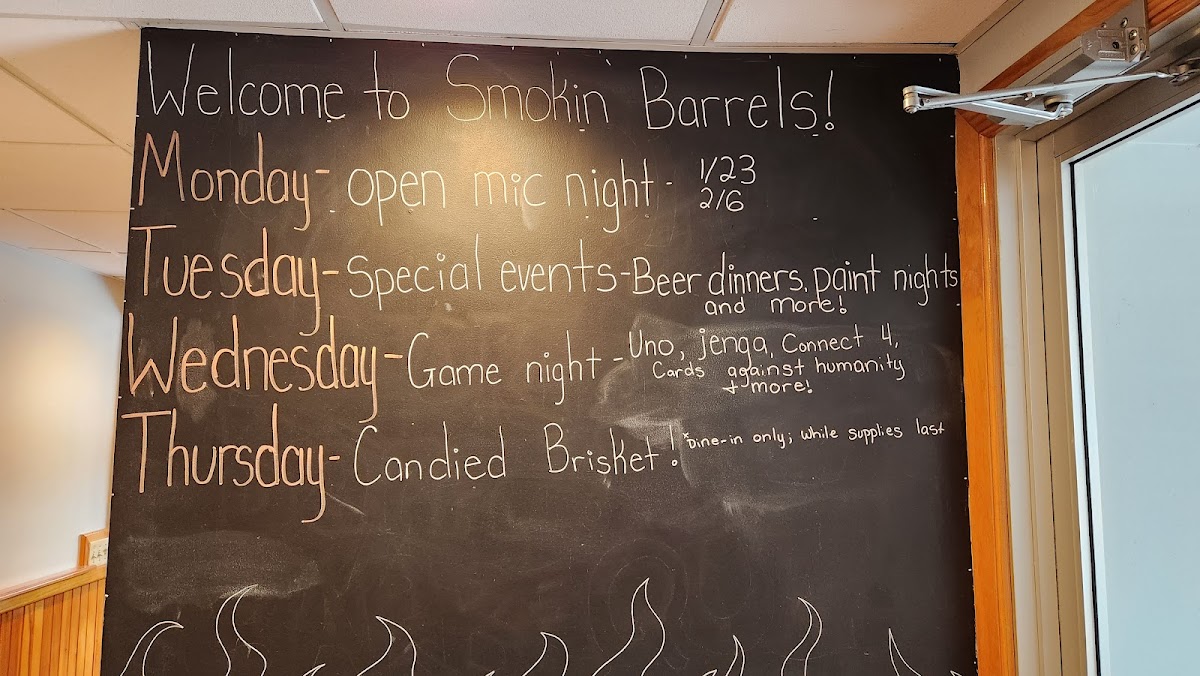 Welcome to Smokin' Barrels!
Monday- open mic night - 1/23
2/6
Tuesday- Special events - Beer dinners, paint nights
and more!
Wednesday- Game night - Uno, jenga, Connect 4,
Cards against humanity
+ more!
Thursday- Candied Brisket! *Dine-in only; while supplies last